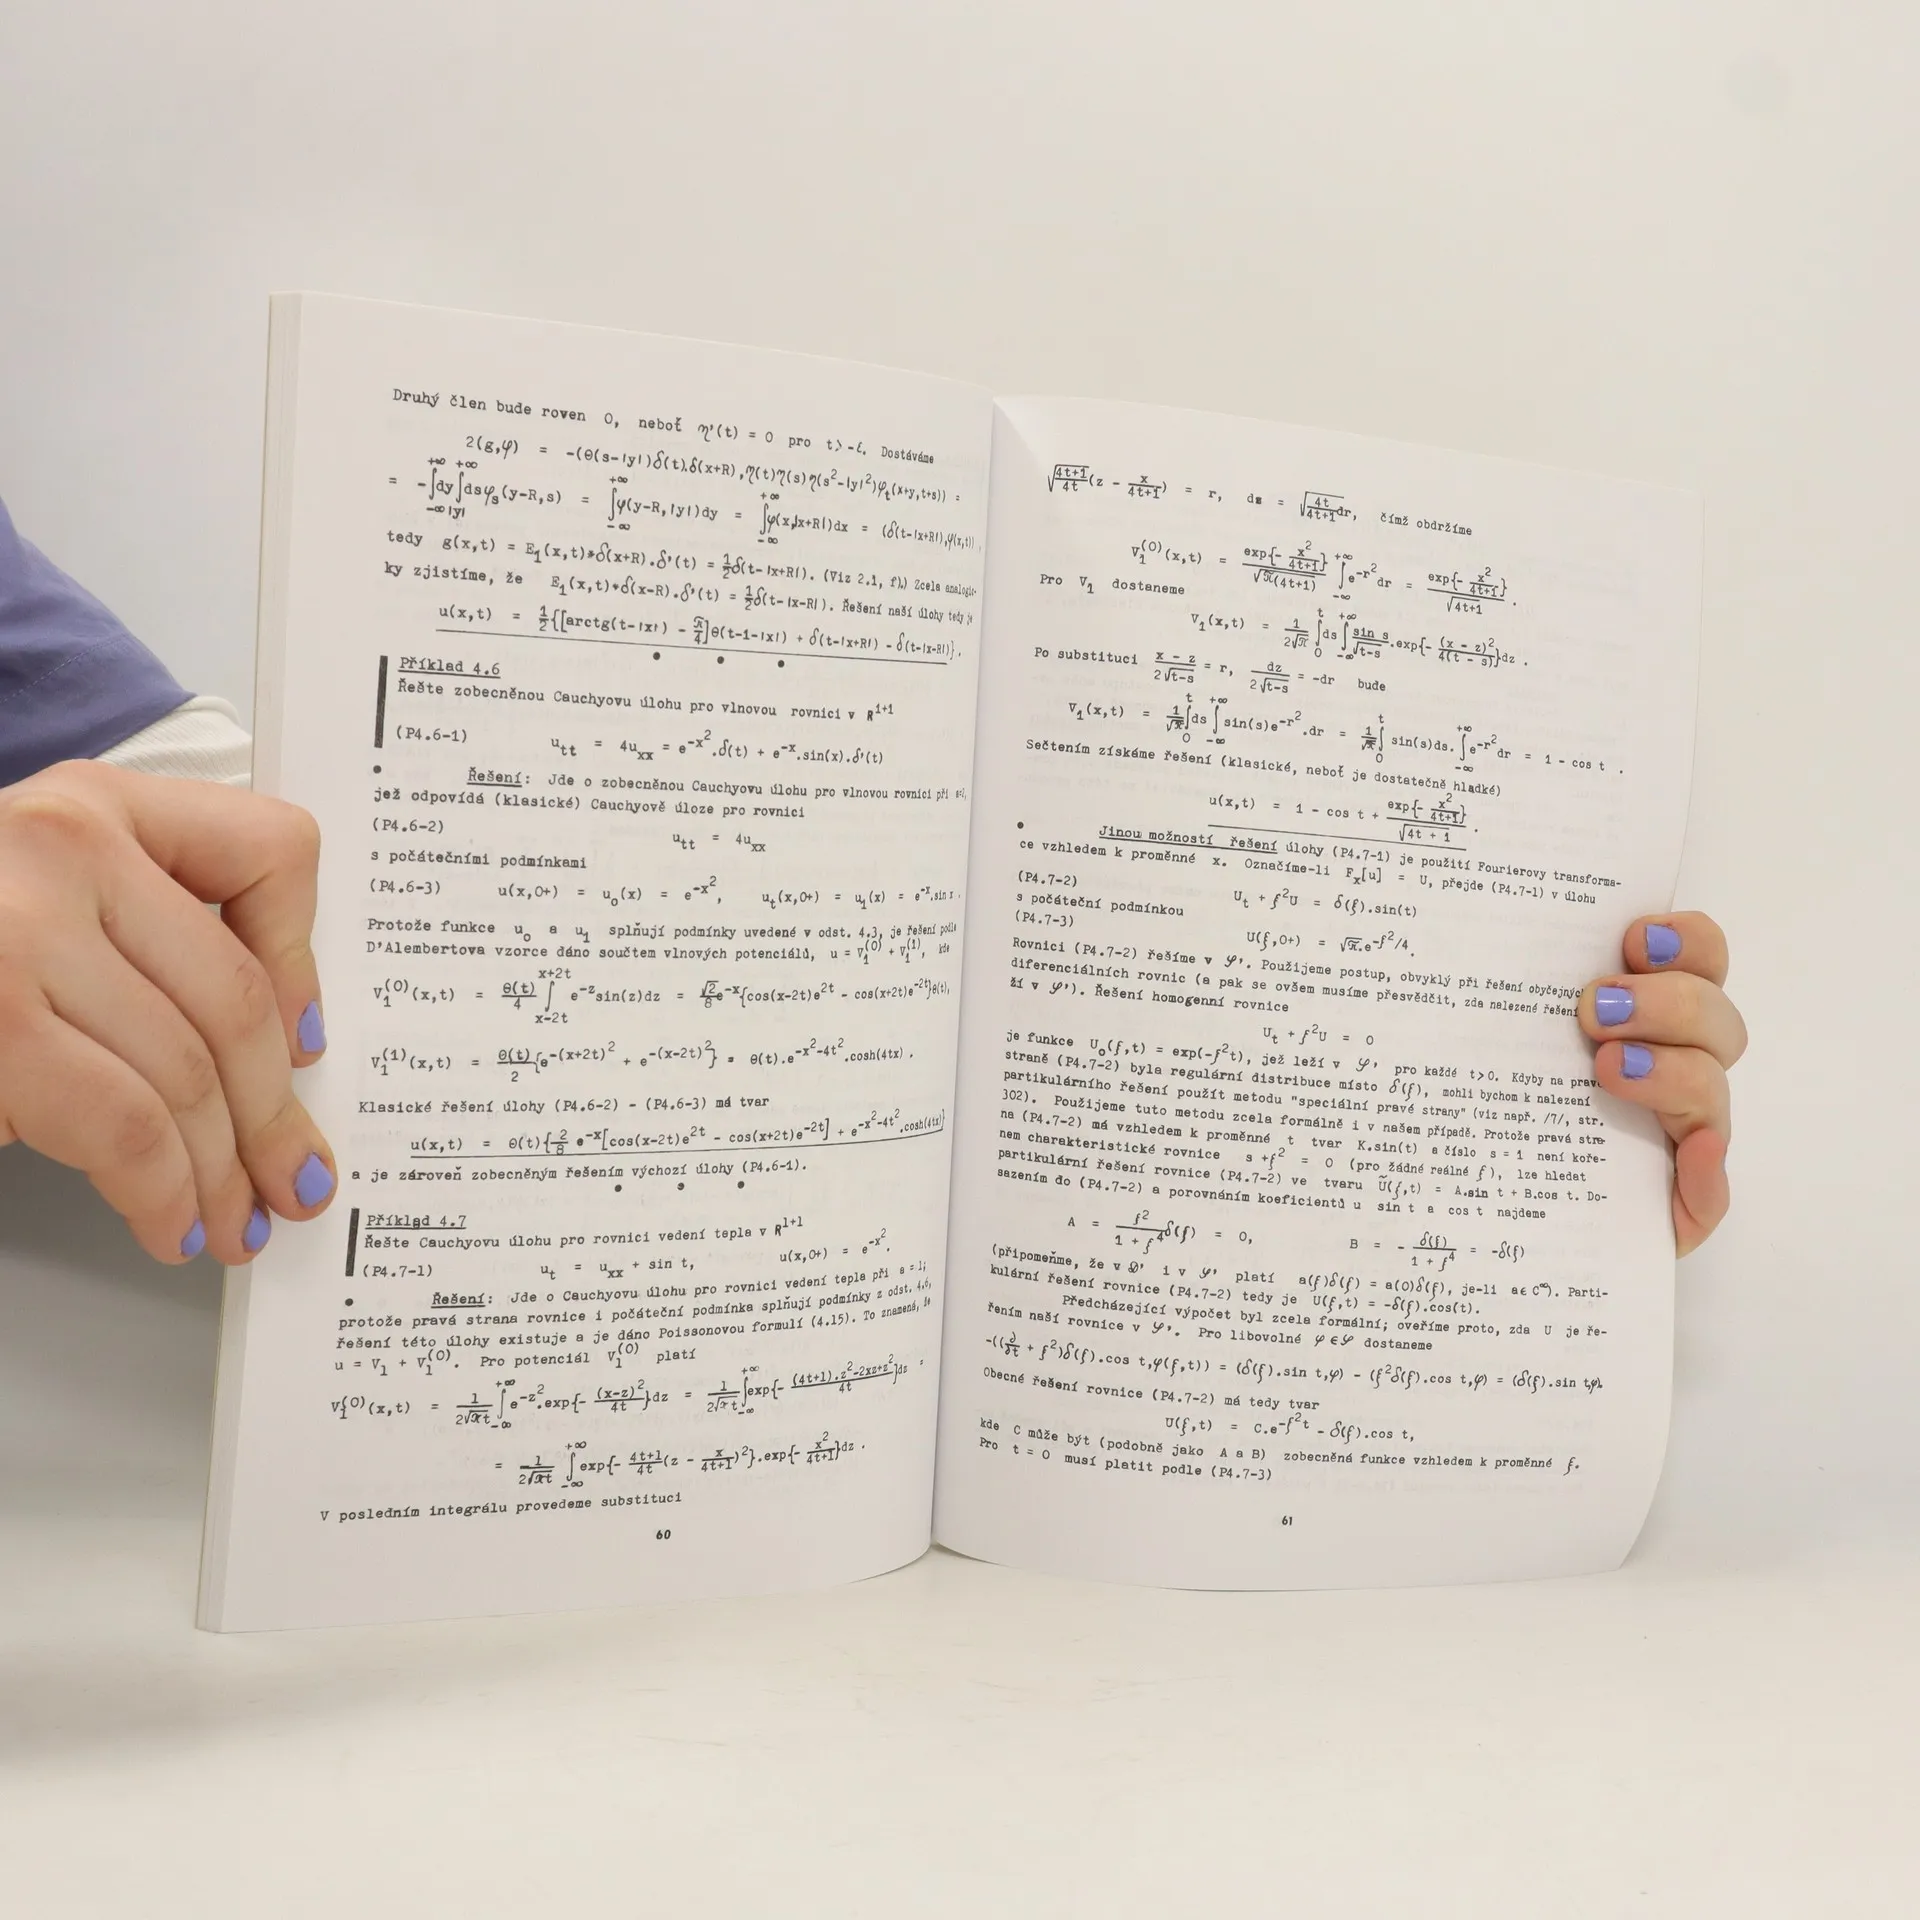 Druhý člen bude roven 0, neboť η'(t) = 0 pro t > -ε. Dostáváme
2(g,φ) = -(θ(s-|y|)δ(t).δ(x+R),η(t)η(s)η(s²-|y|²)φ_t(x+y,t+s)) =
= -∫_{-∞}^{+∞}dy∫_{|y|}^{+∞}dsφ_s(y-R,s) = ∫_{-∞}^{+∞}φ(y-R,|y|)dy = ∫_{-∞}^{+∞}φ(x,|x+R|)dx = (δ(t-|x+R|),φ(x,t)),
tedy g(x,t) = E₁(x,t)*δ(x+R).δ'(t) = ½δ(t-|x+R|). (Viz 2.1, f).) Zcela analogic-
ky zjistíme, že E₁(x,t)*δ(x-R).δ'(t) = ½δ(t-|x-R|). Řešení naší úlohy tedy je
u(x,t) = ½{[arctg(t-|x|) - π/4]θ(t-1-|x|) + δ(t-|x+R|) - δ(t-|x-R|)}.
Příklad 4.6
Řešte zobecněnou Cauchyovu úlohu pro vlnovou rovnici v R¹⁺¹
(P4.6-1) u_tt = 4u_xx = e^{-x²}.δ(t) + e^{-x}.sin(x).δ'(t)
Řešení: Jde o zobecněnou Cauchyovu úlohu pro vlnovou rovnici při a=2,
jež odpovídá (klasické) Cauchyově úloze pro rovnici
(P4.6-2) u_tt = 4u_xx
s počátečními podmínkami
(P4.6-3) u(x,0+) = u₀(x) = e^{-x²}, u_t(x,0+) = u₁(x) = e^{-x}.sin x.
Protože funkce u₀ a u₁ splňují podmínky uvedené v odst. 4.3, je řešení podle
D'Alembertova vzorce dáno součtem vlnových potenciálů, u = V₁^{(0)} + V₁^{(1)}, kde
V₁^{(0)}(x,t) = θ(t)/4 ∫_{x-2t}^{x+2t} e^{-z}sin(z)dz = √2/8 e^{-x}{cos(x-2t)e^{2t} - cos(x+2t)e^{-2t}}θ(t),
V₁^{(1)}(x,t) = θ(t)/2 {e^{-(x+2t)²} + e^{-(x-2t)²}} = θ(t).e^{-x²-4t²}.cosh(4tx).
Klasické řešení úlohy (P4.6-2) - (P4.6-3) má tvar
u(x,t) = θ(t){2/8 e^{-x}[cos(x-2t)e^{2t} - cos(x+2t)e^{-2t}] + e^{-x²-4t²}.cosh(4tx)}
a je zároveň zobecněným řešením výchozí úlohy (P4.6-1).
Příklad 4.7
Řešte Cauchyovu úlohu pro rovnici vedení tepla v R¹⁺¹
(P4.7-1) u_t = u_xx + sin t, u(x,0+) = e^{-x²}.
Řešení: Jde o Cauchyovu úlohu pro rovnici vedení tepla při a = 1;
protože pravá strana rovnice i počáteční podmínka splňují podmínky z odst. 4.6,
řešení této úlohy existuje a je dáno Poissonovou formulí (4.15). To znamená, že
u = V₁ + V₁^{(0)}. Pro potenciál V₁^{(0)} platí
V₁^{(0)}(x,t) = 1/(2√πt) ∫_{-∞}^{+∞} e^{-z²}.exp{-(x-z)²/4t}dz = 1/(2√πt) ∫_{-∞}^{+∞} exp{-((4t+1).z²-2xz+z²)/4t}dz =
= 1/(2√πt) ∫_{-∞}^{+∞} exp{-(4t+1)/4t (z - x/(4t+1))²}.exp{-x²/(4t+1)}dz.
V posledním integrálu provedeme substituci
60
√((4t+1)/4t)(z - x/(4t+1)) = r, dz = √(4t/(4t+1))dr, čímž obdržíme
V₁^{(0)}(x,t) = exp{-x²/(4t+1)}/√(π(4t+1)) ∫_{-∞}^{+∞} e^{-r²}dr = exp{-x²/(4t+1)}/√(4t+1).
Pro V₁ dostaneme
V₁(x,t) = 1/(2√π) ∫_0^t ds ∫_{-∞}^{+∞} sin s/√(t-s).exp{-(x - z)²/(4(t - s))}dz.
Po substituci (x - z)/(2√(t-s)) = r, dz/(2√(t-s)) = -dr bude
V₁(x,t) = 1/√π ∫_0^t ds ∫_{-∞}^{+∞} sin(s)e^{-r²}.dr = 1/√π ∫_0^t sin(s)ds. ∫_{-∞}^{+∞} e^{-r²}dr = 1 - cos t.
Sečtením získáme řešení (klasické, neboť je dostatečně hladké)
u(x,t) = 1 - cos t + exp{-x²/(4t+1)}/√(4t + 1).
Jinou možností řešení úlohy (P4.7-1) je použití Fourierovy transforma-
ce vzhledem k proměnné x. Označíme-li F_x[u] = U, přejde (P4.7-1) v úlohu
(P4.7-2) U_t + ξ²U = δ(ξ).sin(t)
s počáteční podmínkou
(P4.7-3) U(ξ,0+) = √π.e^{-ξ²/4}.
Rovnici (P4.7-2) řešíme v 𝒮'. Použijeme postup, obvyklý při řešení obyčejných
diferenciálních rovnic (a pak se ovšem musíme přesvědčit, zda nalezené řešení
ží v 𝒮'). Řešení homogenní rovnice
U_t + ξ²U = 0
je funkce U₀(ξ,t) = exp(-ξ²t), jež leží v 𝒮' pro každé t>0. Kdyby na pravé
straně (P4.7-2) byla regulární distribuce místo δ(ξ), mohli bychom k nalezení
partikulárního řešení použít metodu "speciální pravé strany" (viz např. /7/, str.
302). Použijeme tuto metodu zcela formálně i v našem případě. Protože pravá stra-
na (P4.7-2) má vzhledem k proměnné t tvar K.sin(t) a číslo s = 1 není koře-
nem charakteristické rovnice s + ξ² = 0 (pro žádné reálné ξ), lze hledat
partikulární řešení rovnice (P4.7-2) ve tvaru Ũ(ξ,t) = A.sin t + B.cos t. Do-
sazením do (P4.7-2) a porovnáním koeficientů u sin t a cos t najdeme
A = ξ²/(1 + ξ⁴)δ(ξ) = 0, B = - δ(ξ)/(1 + ξ⁴) = -δ(ξ)
(připomeňme, že v 𝒟' i v 𝒮' platí a(ξ)δ(ξ) = a(0)δ(ξ), je-li a∈C^∞). Parti-
kulární řešení rovnice (P4.7-2) tedy je U(ξ,t) = -δ(ξ).cos(t).
Předcházející výpočet byl zcela formální; ověříme proto, zda U je ře-
řením naší rovnice v 𝒮'. Pro libovolné φ∈𝒮 dostaneme
-((∂/∂t + ξ²)δ(ξ).cos t,φ(ξ,t)) = (δ(ξ).sin t,φ) - (ξ²δ(ξ).cos t,φ) = (δ(ξ).sin t,φ).
Obecné řešení rovnice (P4.7-2) má tedy tvar
U(ξ,t) = C.e^{-ξ²t} - δ(ξ).cos t,
kde C může být (podobně jako A a B) zobecněná funkce vzhledem k proměnné ξ.
Pro t = 0 musí platit podle (P4.7-3)
61